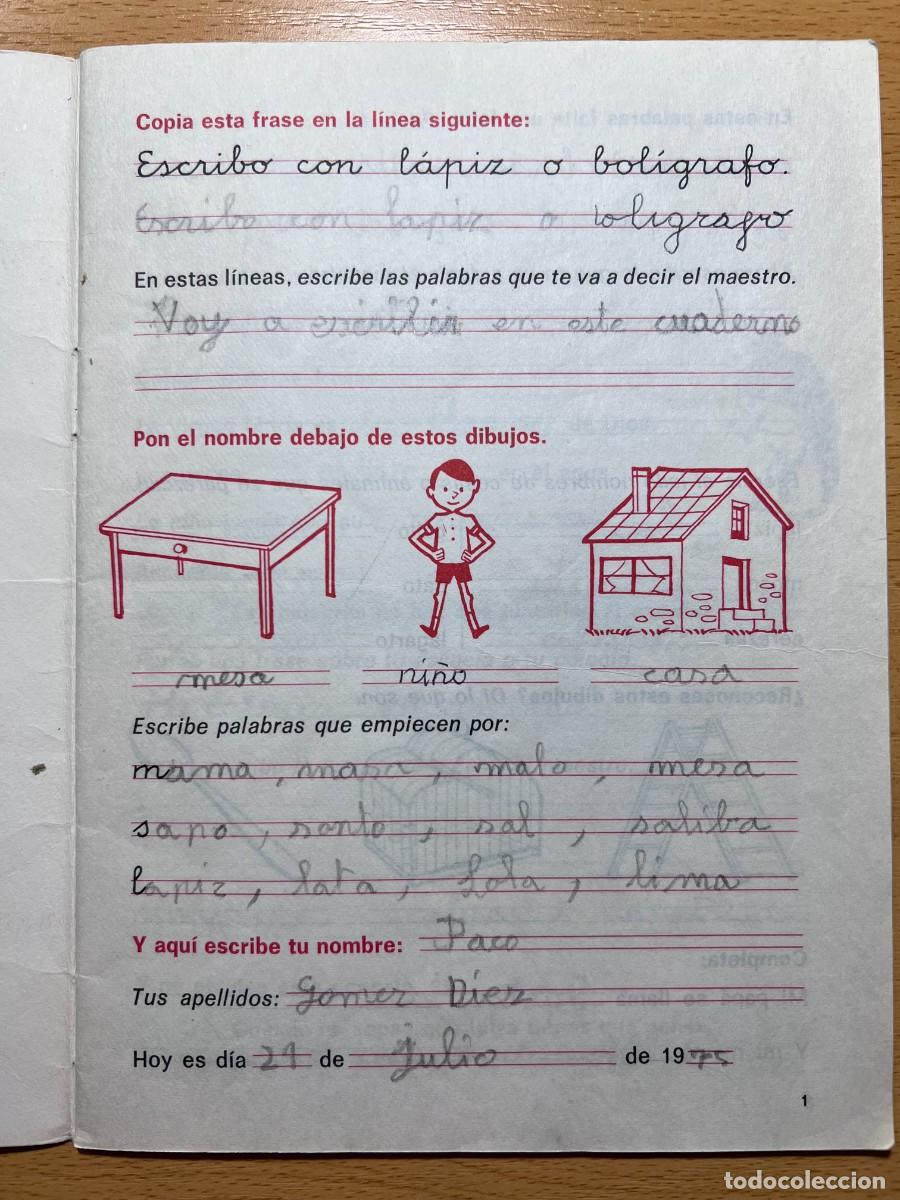 Copia esta frase en la línea siguiente:
Escribo con lápiz o bolígrafo.
Escribo con lapiz o boligrafo
En estas líneas, escribe las palabras que te va a decir el maestro.
Voy a escribir en este cuaderno
Pon el nombre debajo de estos dibujos.
mesa niño casa
Escribe palabras que empiecen por:
mama, mapa, malo, mesa
sapo, santo, sal, saliba
lapiz, lata, Lola, lima
Y aquí escribe tu nombre: Paco
Tus apellidos: Gomez Díez
Hoy es día 21 de Julio de 1975
1
todocoleccion